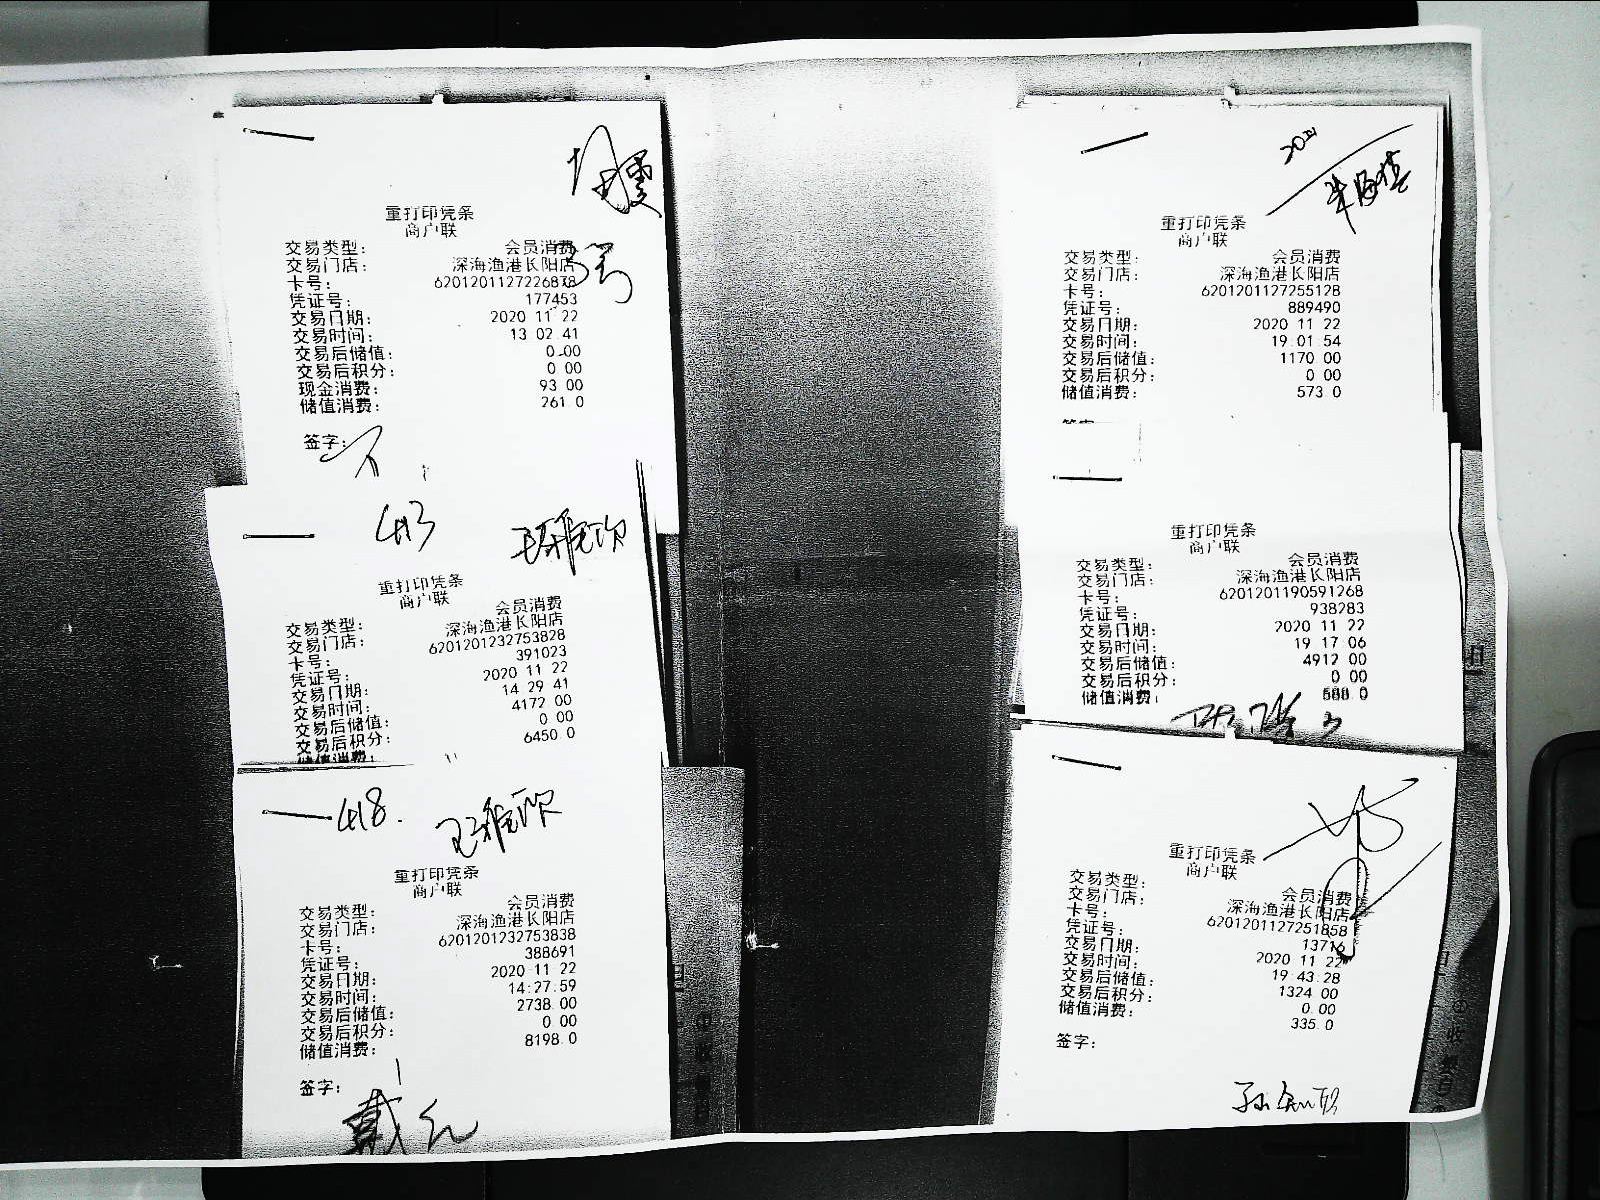 重打印凭条
商户联
交易类型: 会员消费
交易门店: 深海渔港长阳店
卡号: 6201201127226878
凭证号: 177453
交易日期: 2020 11 22
交易时间: 13 02 41
交易后储值: 0.00
交易后积分: 0 00
现金消费: 93 00
储值消费: 261.0
签字:
413 王雅欣
重打印凭条
商户联
交易类型: 会员消费
交易门店: 深海渔港长阳店
卡号: 6201201232753828
凭证号: 391023
交易日期: 2020 11 22
交易时间: 14 29 41
交易后储值: 4172 00
交易后积分: 0 00
储值消费: 6450.0
418. 王雅欣
重打印凭条
商户联
交易类型: 会员消费
交易门店: 深海渔港长阳店
卡号: 6201201232753838
凭证号: 388691
交易日期: 2020-11-22
交易时间: 14:27:59
交易后储值: 2738.00
交易后积分: 0 00
储值消费: 8198.0
签字:
戴红
重打印凭条
商户联
交易类型: 会员消费
交易门店: 深海渔港长阳店
卡号: 6201201127255128
凭证号: 889490
交易日期: 2020 11 22
交易时间: 19:01:54
交易后储值: 1170 00
交易后积分: 0 00
储值消费: 573 0
重打印凭条
商户联
交易类型: 会员消费
交易门店: 深海渔港长阳店
卡号: 6201201190591268
凭证号: 938283
交易日期: 2020 11 22
交易时间: 19 17 06
交易后储值: 4912 00
交易后积分: 0 00
储值消费: 588 0
重打印凭条
商户联
交易类型: 会员消费
交易门店: 深海渔港长阳店
卡号: 6201201127251858
凭证号: 13716
交易日期: 2020 11 22
交易时间: 19:43:28
交易后储值: 1324 00
交易后积分: 0.00
储值消费: 335.0
签字: